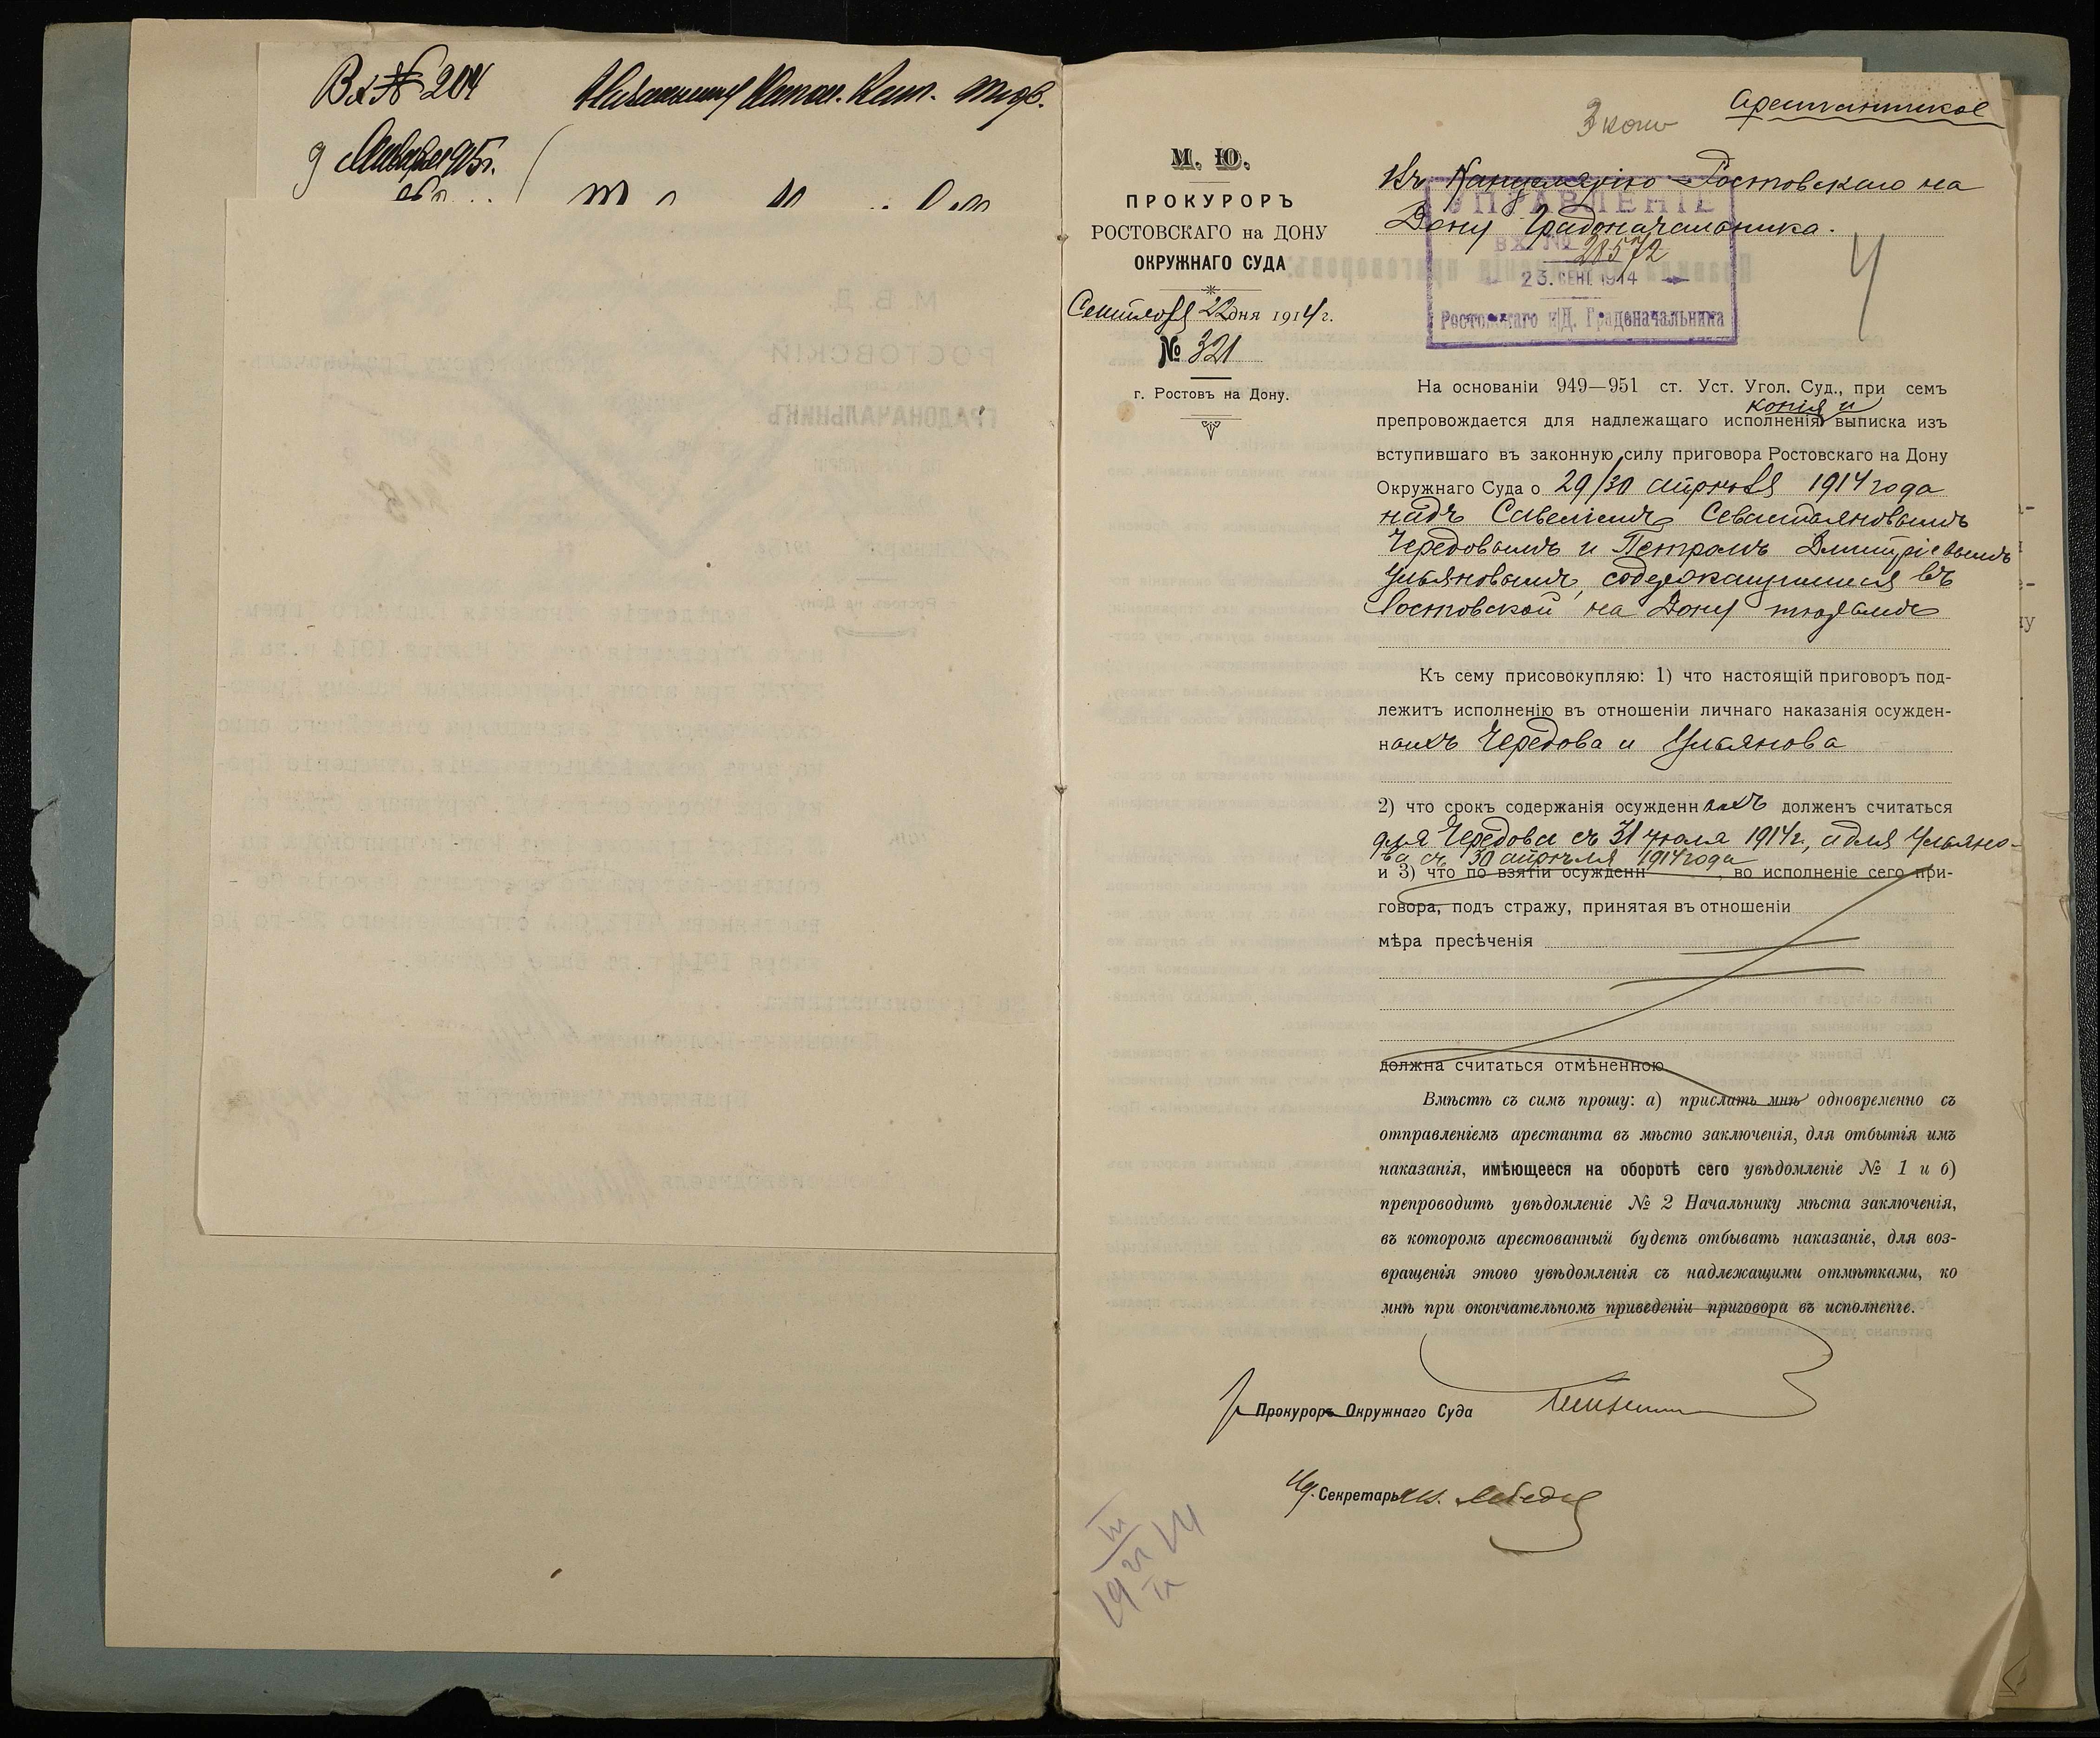 Вх № 204
9 Января 1915 г.
Начальнику
Арестантское
3 копіи
М. Ю.
ПРОКУРОРЪ
РОСТОВСКАГО на ДОНУ
ОКРУЖНАГО СУДА
Сентября 22 дня 1914 г.
№ 321
г. Ростовъ на Дону.
Въ Канцелярію Ростовскаго на
Дону Градоначальника.
4
УПРАВЛЕНІЕ
ВХ. № 28572
23. СЕНТ. 1914
Ростовскаго н/Д. Градоначальника
На основаніи 949—951 ст. Уст. Угол. Суд., при семъ
копія и
препровождается для надлежащаго исполненія выписка изъ
вступившаго въ законную силу приговора Ростовскаго на Дону
Окружнаго Суда о 29/30 апрѣля 1914 года
надъ Савеліемъ Севастьяновымъ
Чередовымъ и Петромъ Дмитріевымъ
Ульяновымъ, содержащимися въ
Ростовской на Дону тюрьмѣ
Къ сему присовокупляю: 1) что настоящій приговоръ под-
лежитъ исполненію въ отношеніи личнаго наказанія осужден-
ныхъ Чередова и Ульянова
2) что срокъ содержанія осужденныхъ долженъ считаться
для Чередова съ 31 іюля 1914 г., а для Ульяно-
ва съ 30 апрѣля 1914 года
и 3) что по взятіи осужденн , во исполненіе сего при-
говора, подъ стражу, принятая въ отношеніи
мѣра пресѣченія
должна считаться отмѣненною
Вмѣстѣ съ симъ прошу: а) прислать мнѣ одновременно съ
отправленіемъ арестанта въ мѣсто заключенія, для отбытія имъ
наказанія, имѣющееся на оборотѣ сего увѣдомленіе № 1 и б)
препроводить увѣдомленіе № 2 Начальнику мѣста заключенія,
въ которомъ арестованный будетъ отбывать наказаніе, для воз-
вращенія этого увѣдомленія съ надлежащими отмѣтками, ко
мнѣ при окончательномъ приведеніи приговора въ исполненіе.
Прокуроръ Окружнаго Суда
Секретарь